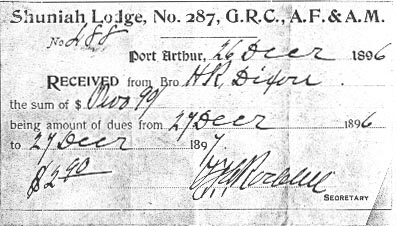 Shuniah Lodge, No. 287, G.R.C., A.F. & A.M.
No 488
Port Arthur, 26 Decr 1896
RECEIVED from Bro H.R. Dixon
the sum of $
being amount of dues from 27 Decr 1896
to 27 Decr 1897.
$2.90
SECRETARY